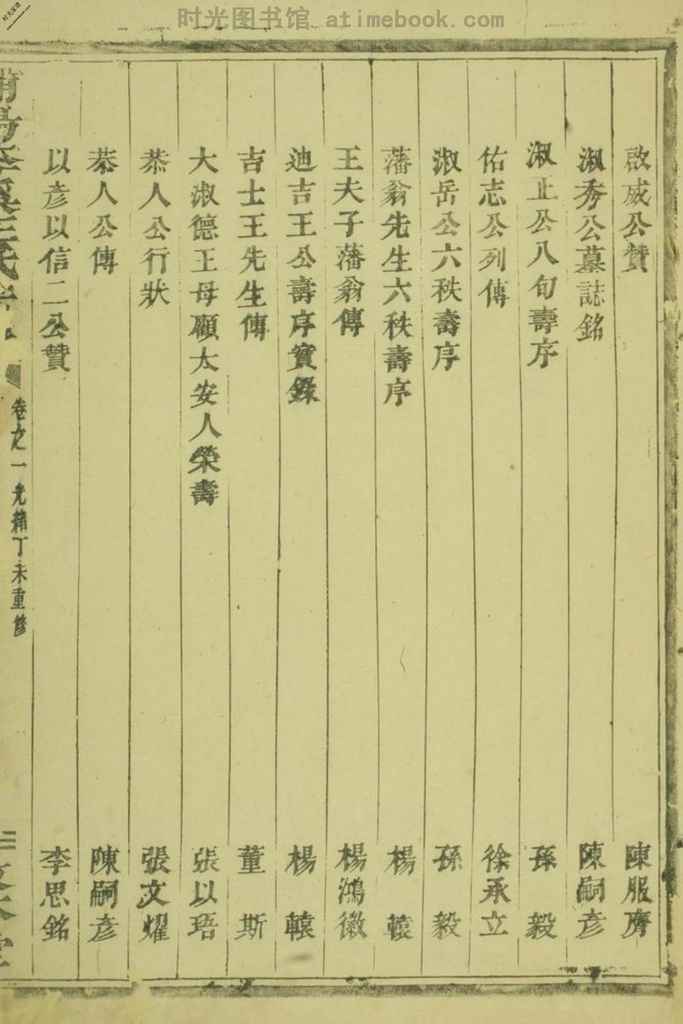 时光图书馆 atimebook.com
啟咸公贊 陳服膺
淑秀公墓誌銘 陳嗣彥
淑止公八旬壽序 孫毅
佑志公列傳 徐承立
淑岳公六秩壽序 孫毅
藩翁先生六秩壽序 楊轅
王夫子藩翁傳 楊鴻徽
迪吉王公壽序實錄 楊轅
吉士王先生傳 董斯
大淑德王母願太安人榮壽 張以珸
恭人公行狀 張文燿
恭人公傳 陳嗣彥
以彥以信二公贊 李思銘
卷之一光緒丁未重修